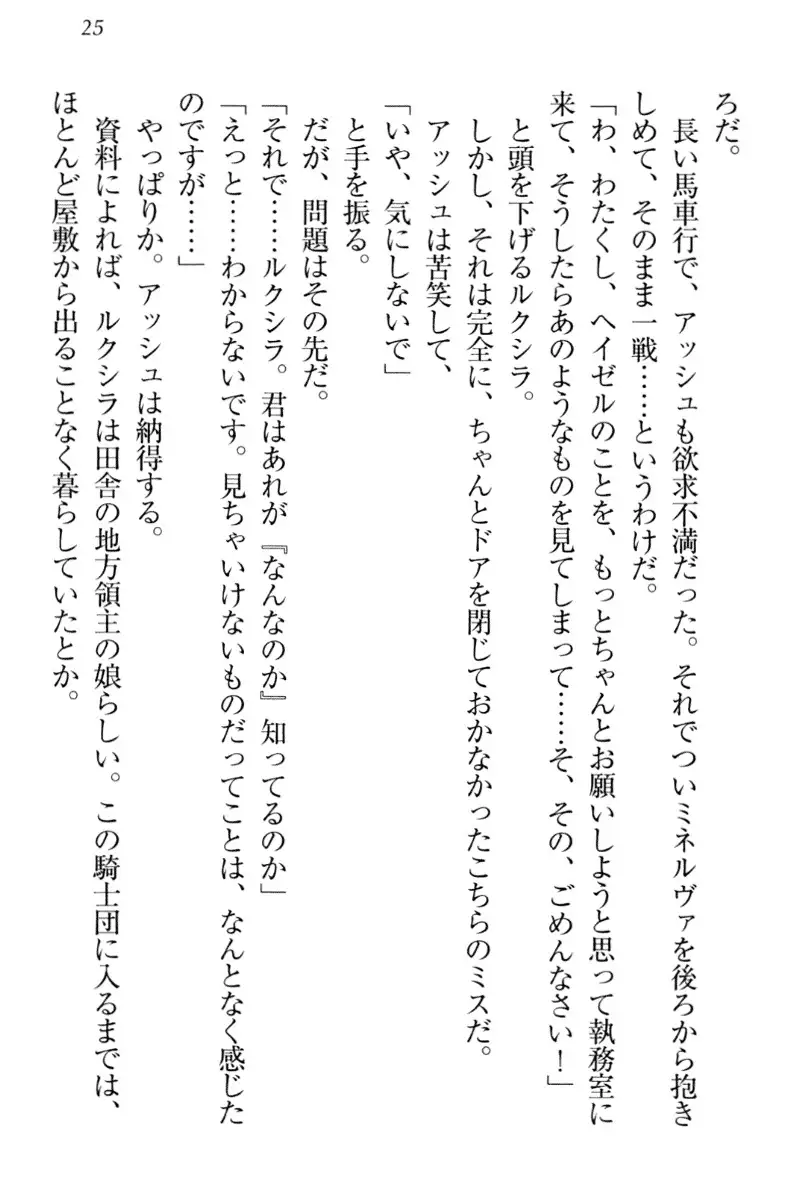 25
ろだ。
　長い馬車行で、アッシュも欲求不満だった。それでついミネルヴァを後ろから抱き
しめて、そのまま一戦……というわけだ。
「わ、わたくし、ヘイゼルのことを、もっとちゃんとお願いしようと思って執務室に
来て、そうしたらあのようなものを見てしまって……そ、その、ごめんなさい！」
と頭を下げるルクシラ。
　しかし、それは完全に、ちゃんとドアを閉じておかなかったこちらのミスだ。
　アッシュは苦笑して、
「いや、気にしないで」
と手を振る。
　だが、問題はその先だ。
「それで……ルクシラ。君はあれが『なんなのか』知ってるのか」
「えっと……わからないです。見ちゃいけないものだってことは、なんとなく感じた
のですが……」
　やっぱりか。アッシュは納得する。
　資料によれば、ルクシラは田舎の地方領主の娘らしい。この騎士団に入るまでは、
ほとんど屋敷から出ることなく暮らしていたとか。